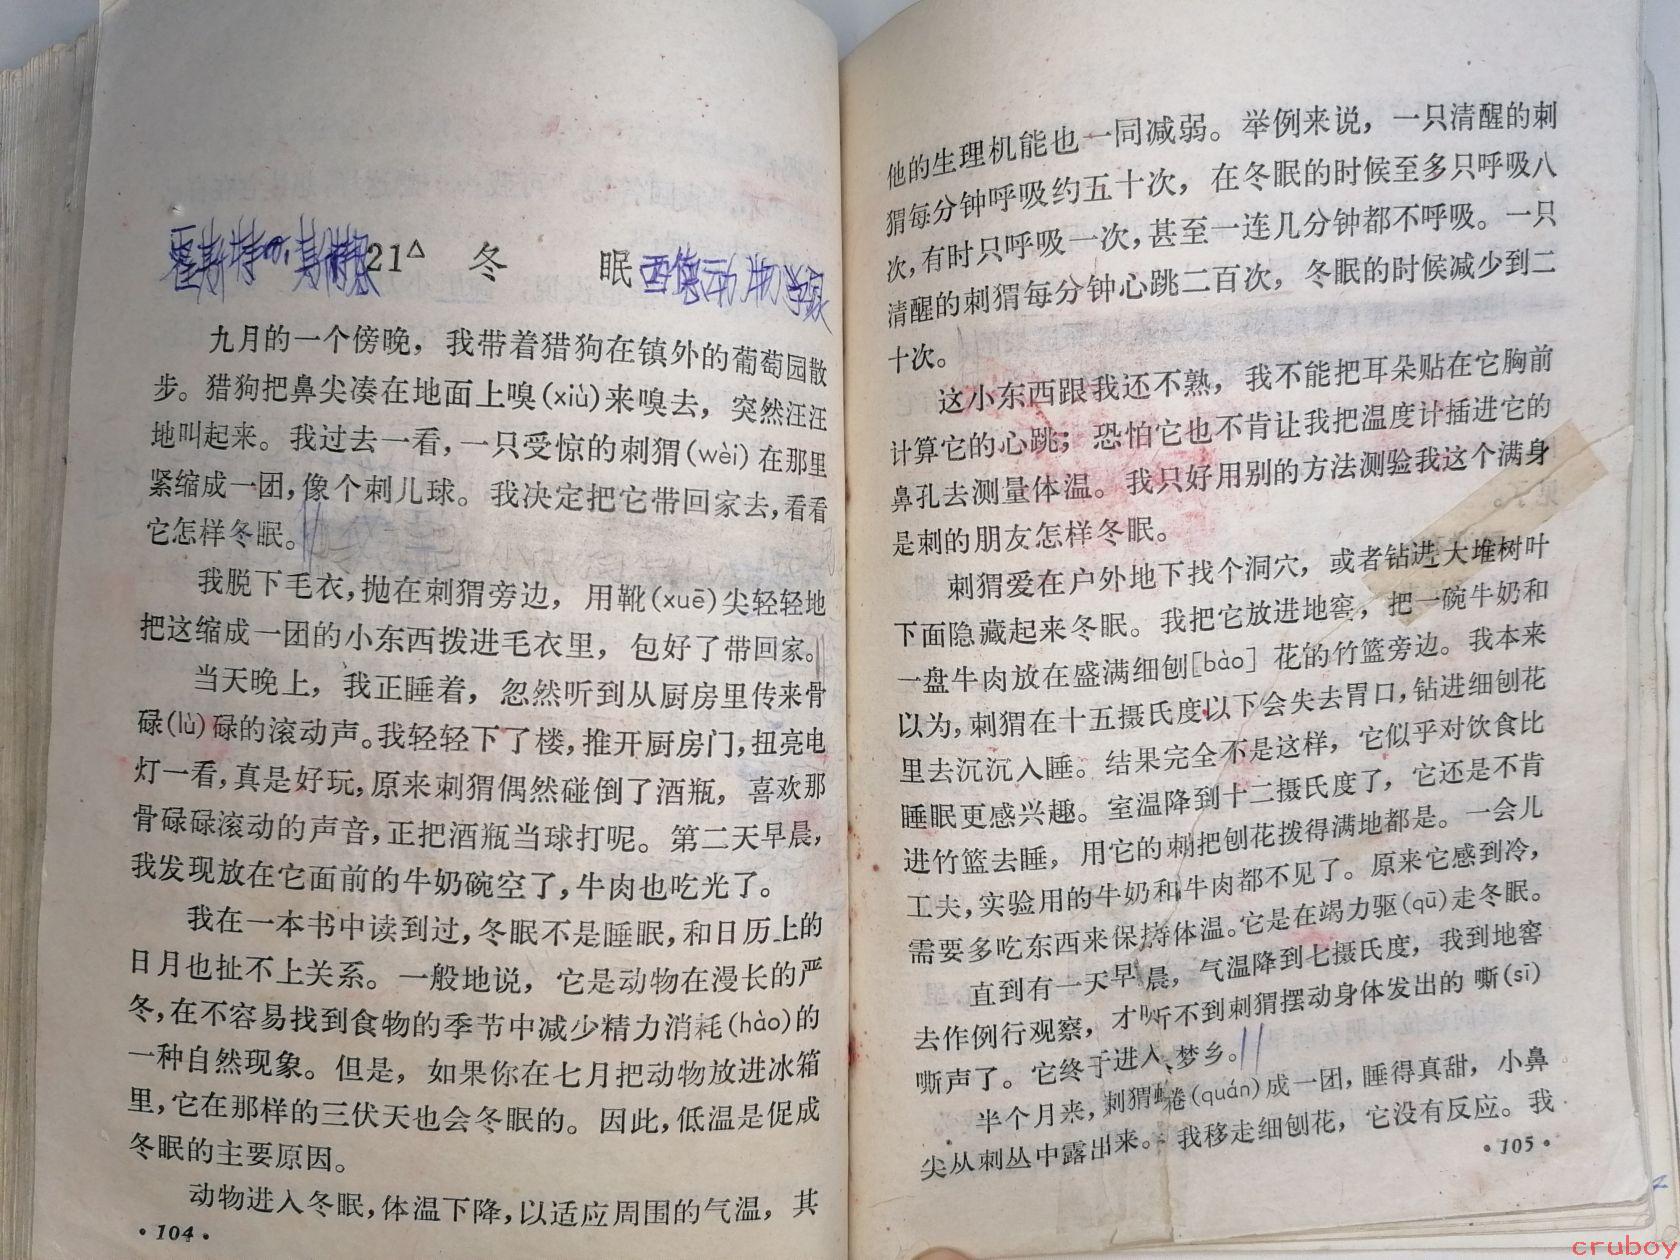 霍斯特·
21△ 冬 眠
西德动物学家
九月的一个傍晚，我带着猎狗在镇外的葡萄园散
步。猎狗把鼻尖凑在地面上嗅(xiù)来嗅去，突然汪汪
地叫起来。我过去一看，一只受惊的刺猬(wèi)在那里
紧缩成一团，像个刺儿球。我决定把它带回家去，看看
它怎样冬眠。
我脱下毛衣，抛在刺猬旁边，用靴(xuē)尖轻轻地
把这缩成一团的小东西拨进毛衣里，包好了带回家。
当天晚上，我正睡着，忽然听到从厨房里传来骨
碌(lù)碌的滚动声。我轻轻下了楼，推开厨房门，扭亮电
灯一看，真是好玩，原来刺猬偶然碰倒了酒瓶，喜欢那
骨碌碌滚动的声音，正把酒瓶当球打呢。第二天早晨，
我发现放在它面前的牛奶碗空了，牛肉也吃光了。
我在一本书中读到过，冬眠不是睡眠，和日历上的
日月也扯不上关系。一般地说，它是动物在漫长的严
冬，在不容易找到食物的季节中减少精力消耗(hào)的
一种自然现象。但是，如果你在七月把动物放进冰箱
里，它在那样的三伏天也会冬眠的。因此，低温是促成
冬眠的主要原因。
动物进入冬眠，体温下降，以适应周围的气温，其
·104·
他的生理机能也一同减弱。举例来说，一只清醒的刺
猬每分钟呼吸约五十次，在冬眠的时候至多只呼吸八
次，有时只呼吸一次，甚至一连几分钟都不呼吸。一只
清醒的刺猬每分钟心跳二百次，冬眠的时候减少到二
十次。
这小东西跟我还不熟，我不能把耳朵贴在它胸前
计算它的心跳；恐怕它也不肯让我把温度计插进它的
鼻孔去测量体温。我只好用别的方法测验我这个满身
是刺的朋友怎样冬眠。
刺猬爱在户外地下找个洞穴，或者钻进大堆树叶
下面隐藏起来冬眠。我把它放进地窖，把一碗牛奶和
一盘牛肉放在盛满细刨[bào]花的竹篮旁边。我本来
以为，刺猬在十五摄氏度以下会失去胃口，钻进细刨花
里去沉沉入睡。结果完全不是这样，它似乎对饮食比
睡眠更感兴趣。室温降到十二摄氏度了，它还是不肯
进竹篮去睡，用它的刺把刨花拨得满地都是。一会儿
工夫，实验用的牛奶和牛肉都不见了。原来它感到冷，
需要多吃东西来保持体温。它是在竭力驱(qū)走冬眠。
直到有一天早晨，气温降到七摄氏度，我到地窖
去作例行观察，才听不到刺猬摆动身体发出的嘶(sī)
嘶声了。它终于进入梦乡。
半个月来，刺猬蜷(quán)成一团，睡得真甜，小鼻
尖从刺丛中露出来。我移走细刨花，它没有反应。我
·105·
cruboy